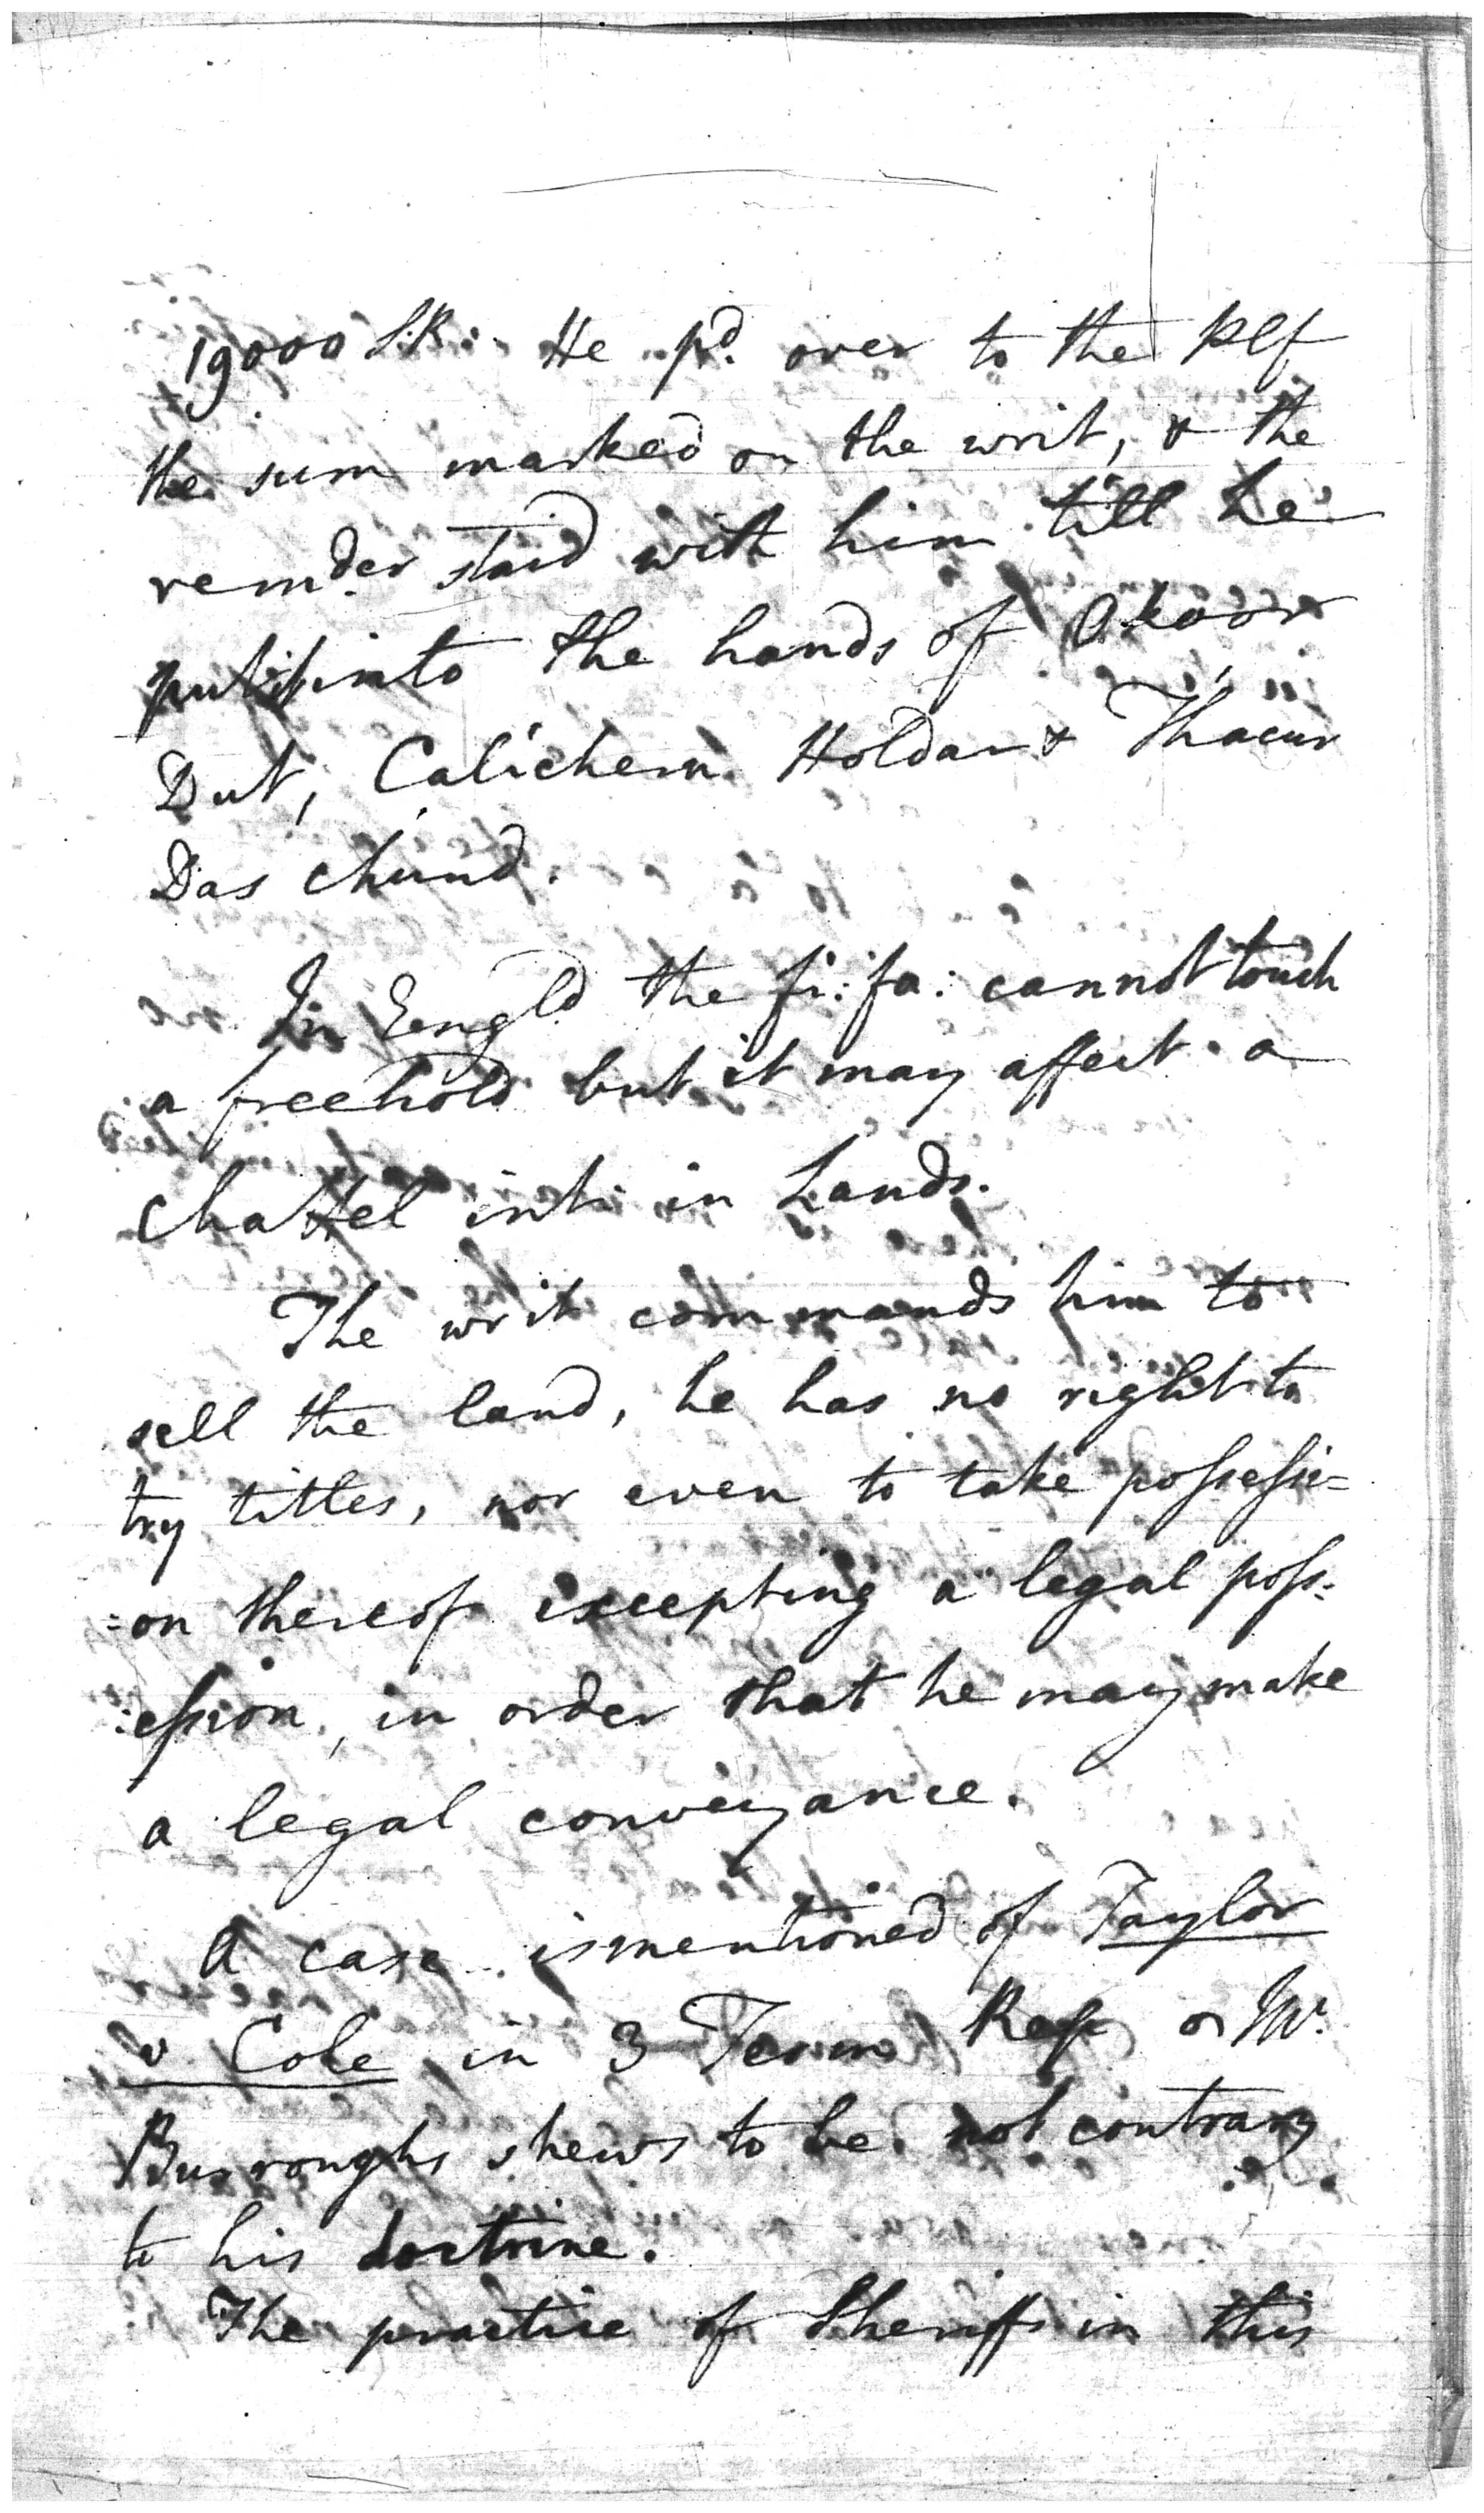 19000 S.R. He pd. over to the Plf
the sum marked on the writ, & the
remder. staid with him till he
put it into the hands of Okoor
Dut, Calichern Holdar & Thacur
Das Chund.
In Engld the fi: fa: cannot touch
a freehold but it may affect a
Chattel int: in Lands.
The writ commands him to
sell the land, he has no right to
try titles, nor even to take possessi=
=on thereof excepting a legal poss:
:ession, in order that he may make
a legal conveyance.
A case is mentioned of Taylor
v Cole in 3 Term Rep or Mr.
Burroughs shews to be not contrary
to his doctrine.
The practice of Sheriffs in this